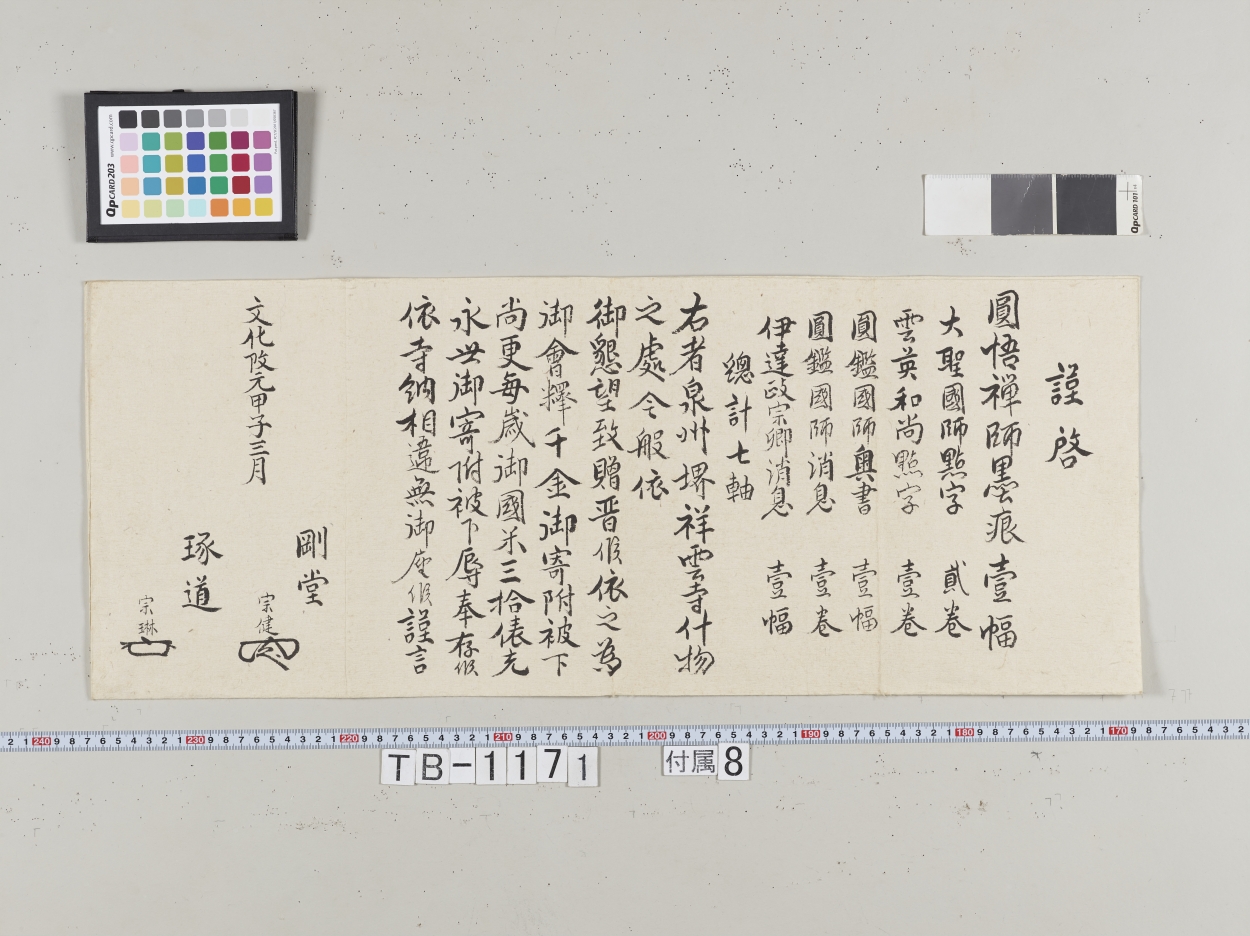 謹啓
圓悟禪師墨痕 壹幅
大聖國師點字 貳卷
雲英和尚點字 壹卷
圓鑑國師奥書 壹幅
圓鑑國師消息 壹卷
伊達政宗卿消息 壹幅
總計七軸
右者泉州堺祥雲寺什物
之處今般依
御懇望致贈晋候依之為
御會釋千金御寄附被下
尚更每歳御國米三拾俵充
永世御寄附被下辱奉存候
依寺納相違無御座候謹言
文化改元甲子三月
剛堂
宗健
琢道
宗琳
QpCARD 203
www.qpcard.com
QpCARD 101
TB-1171
付属8
240 230 220 210 200 190 180 170